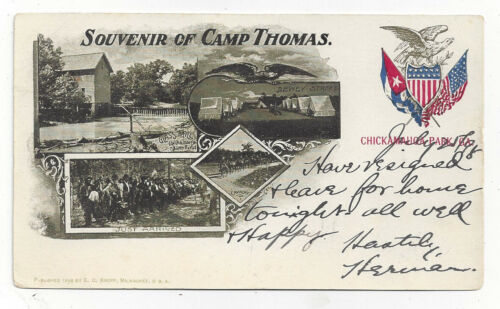 SOUVENIR OF CAMP THOMAS.
DEWEY STREET
JUST ARRIVED
CHICKAMAUGA PARK, GA.
July 27/98
Have resigned
& leave for home
tonight all well
& Happy. Hastily
Herman.
PUBLISHED 1898 BY E. C. KROPP, MILWAUKEE, U. S. A.